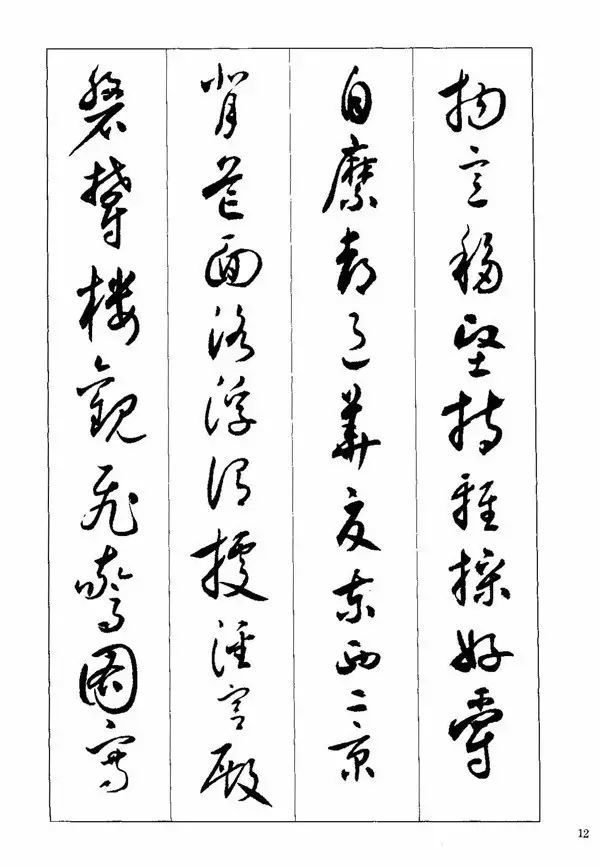 物意移坚持雅操好爵
自縻都邑华夏东西二京
背芒面洛浮渭据泾宫殿
磐郁楼观飞惊图写
12